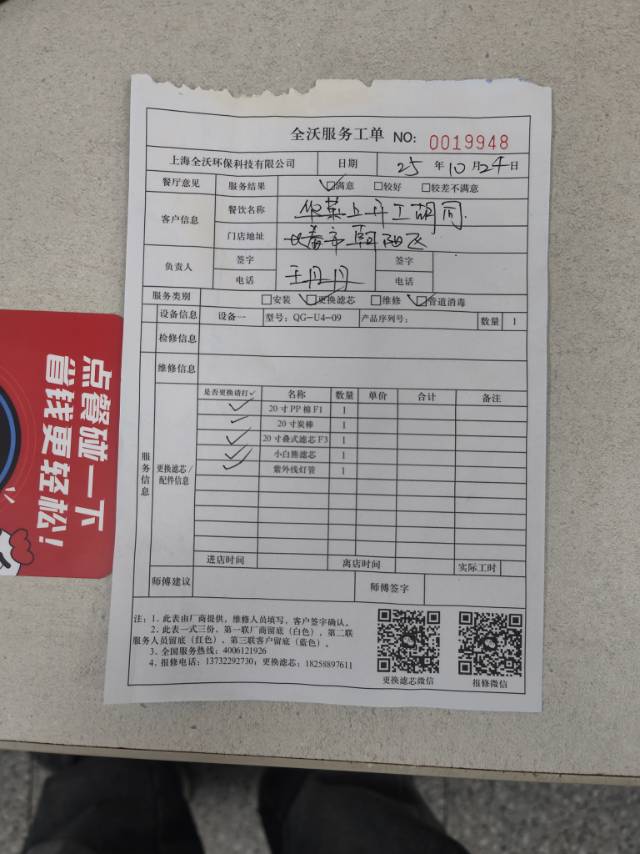 全沃服务工单 NO: 0019948
上海全沃环保科技有限公司 日期 25 年 10 月 24 日
餐厅意见 服务结果 ☑满意 □较好 □较差不满意
客户信息 餐饮名称
门店地址 长春市朝阳区
负责人 签字 王丹丹 签字
电话 电话
服务类别 □安装 ☑更换滤芯 □维修 ☑管道消毒
设备信息 设备一 型号：QG-U4-09 产品序列号： 数量 1
检修信息
维修信息
服务信息
更换滤芯/配件信息
是否更换请打✓ 名称 数量 单价 合计 备注
✓ 20寸PP棉F1 1
✓ 20寸炭棒 1
✓ 20寸叠式滤芯F3 1
✓ 小白熊滤芯 1
✓ 紫外线灯管 1
进店时间 离店时间 实际工时
师傅建议 师傅签字
注：1、此表由厂商提供，维修人员填写，客户签字确认。
2、此表一式三份，第一联厂商留底（白色），第二联
服务人员留底（红色），第三联客户留底（蓝色）。
3、全国服务热线：4006121926
4、报修电话：13732292730；更换滤芯：18258897611
更换滤芯微信 报修微信
点餐碰一下
省钱更轻松！